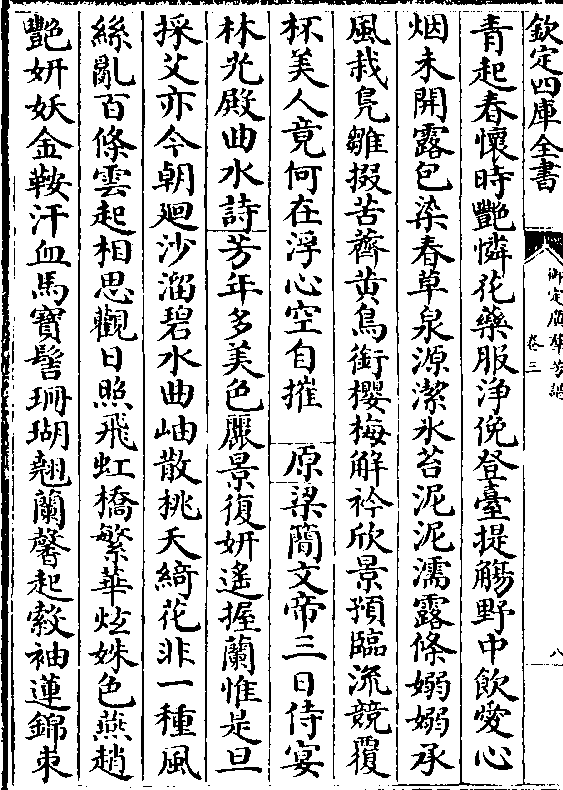 欽定四庫全書
御定廣羣芳譜
卷三
八
青起春懷時豔憐花藥服淨俛登臺提觴野中飲愛心
烟未開露色染春草泉源潔氷苔泥泥濡露條嫋嫋承
風栽鳬雛掇苦薺黄鳥銜櫻梅解衿欣景預臨流競覆
杯美人竟何在浮心空自摧　原梁簡文帝三日侍宴
林光殿曲水詩芳年多美色麗景復妍遙握蘭惟是旦
採艾亦今朝廻沙溜碧水曲岫散桃夭綺花非一種風
絲亂百條雲起相思觀日照飛虹橋繁華炫姝色燕趙
豔妍妖金鞍汗血馬寶髻珊瑚翹蘭馨起縠袖蓮錦束